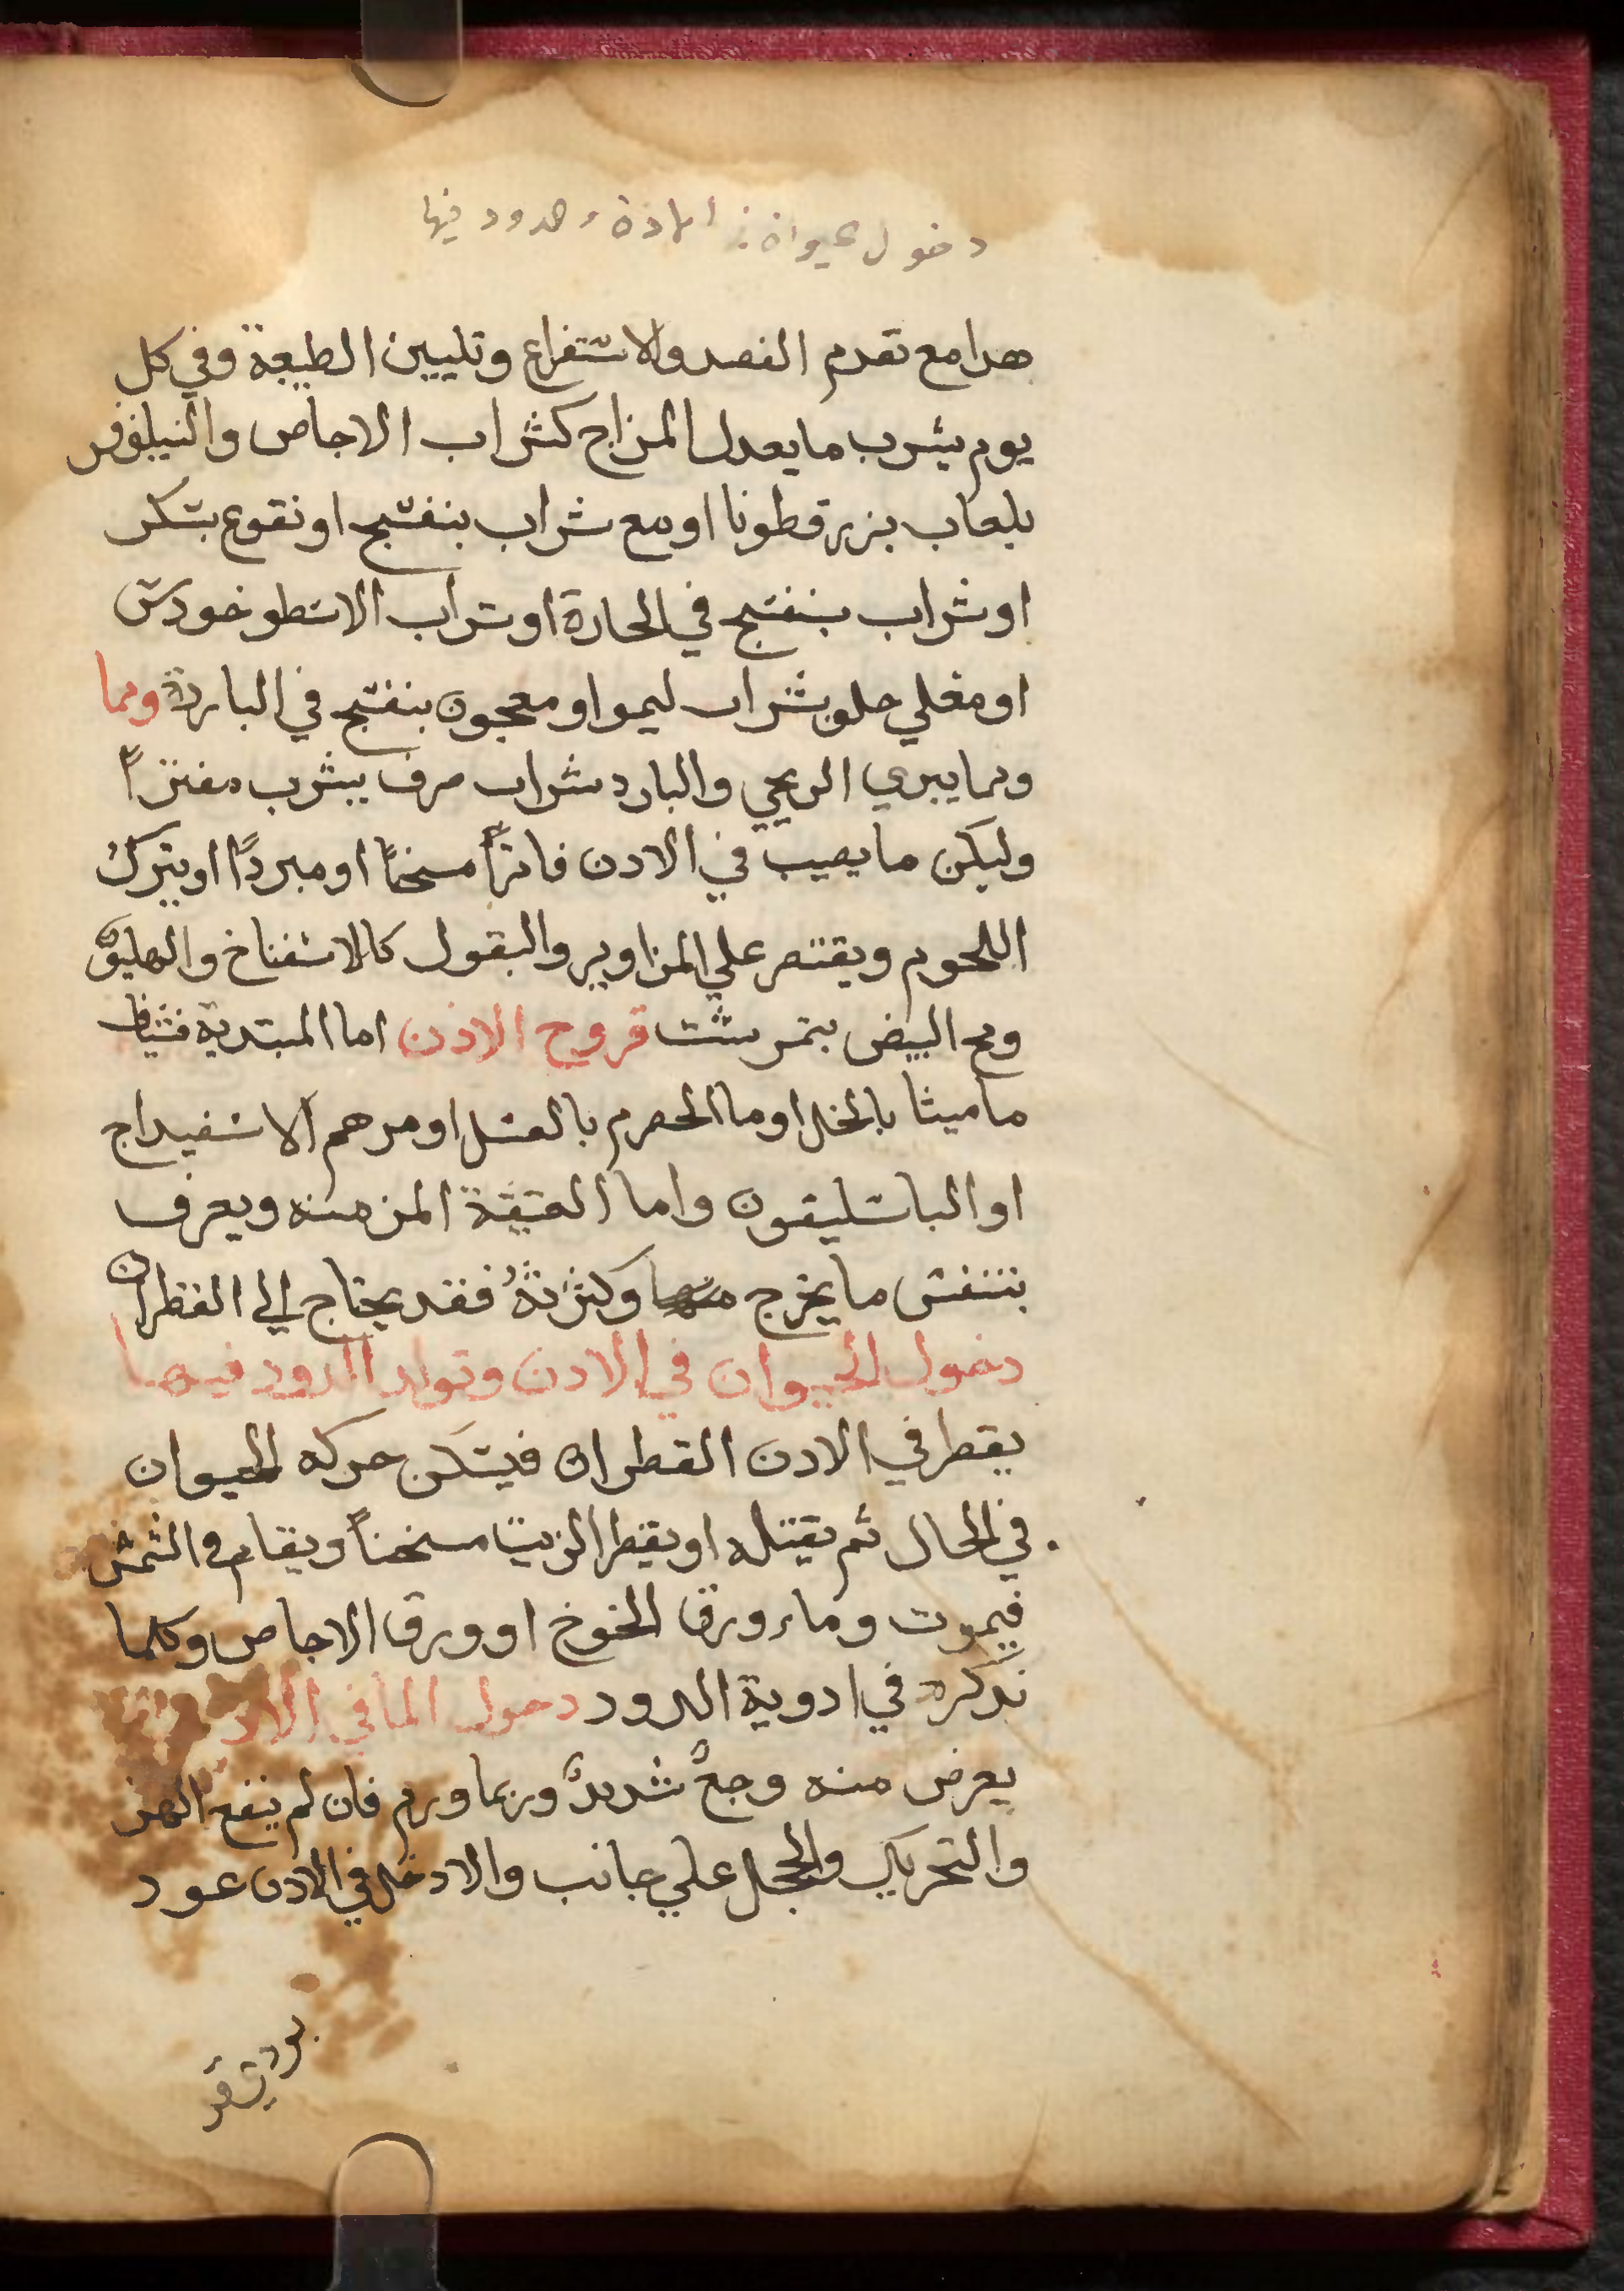 دخول حيوان في الاذن والدود فيها
هدا مع تقدم الفصد والاستفراع وتليين الطبيعة وفي كل
يوم يشرب ما يعدل المزاج كشراب الاجاص والنيلوفر
بلعاب بزر قطونا او مع شراب بنفسج او نقوع بسكر
او شراب بنفسج في الحارة او شراب الاسطوخودس
او مغلي حلو بشراب ليمو او معجون بنفسج في الباردة ومما
ومما يبري الريحي والبارد شراب صرف يشرب مفترًا
وليكن ما يصب في الادن فاترًا مسخنًا او مبردًا او يترك
اللحوم ويقتصر علي المزاوير والبقول كالاسفناخ والهليون
ومح البيض بنمرشت قروح الاذن اما المبتدية فشياف
ماميثا بالخل او ما الحصرم بالعسل او مرهم الاسفيداج
او الباسليقون واما العتيقة المزمنه ويعرف
بنتن ما يخرج منها وكثرتهُ فقد يحتاج الي القطران
دخول الحيوان في الادن وتولد الدود فيها
يقطر في الادن القطران فيسكن حركه الحيوان
في الحال ثم يقتله او يقطر الزيت مسخنًا ويقام في الشمس
فيموت وماء ورق الخوخ او ورق الاجاص وكلما
نذكره في ادوية الدود دحول الما في الادن
يعرض منه وجعٌ شديدٌ وربما ورم فان لم ينفع الهز
والتحريك والحجل علي جانب والا دخل في الادن عود